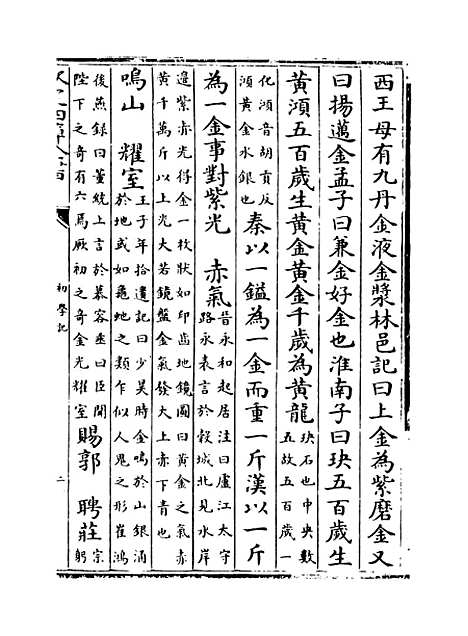 西王母有九丹金液金漿林邑記曰上金為紫磨金又
曰揚邁金孟子曰兼金好金也淮南子曰玦五百歲生
黃澒五百歲生黃金黃金千歲為黃龍
玦石也中央數
五故五百歲一
化澒音胡貢反
澒黃金水銀也
秦以一鎰為一金而重一斤漢以一斤
為一金事對紫光 赤氣
晉永和起居注曰廬江太守
路永表言於穀城北見水岸
邉紫赤光得金一枚狀如印齒地鏡圖曰黃金之氣赤
黃千萬斤以上光大若鏡盤金氣發大上赤下青也
鳴山 耀室
王子年拾遺記曰少昊時金鳴於山銀涌
於地或如龜地之類乍似人鬼之形崔鴻
後燕錄曰董統上言於慕容垂曰臣聞
陛下之奇有六焉厥初之奇金光耀室
賜郭 聘莊
宗
躬
初學記
二